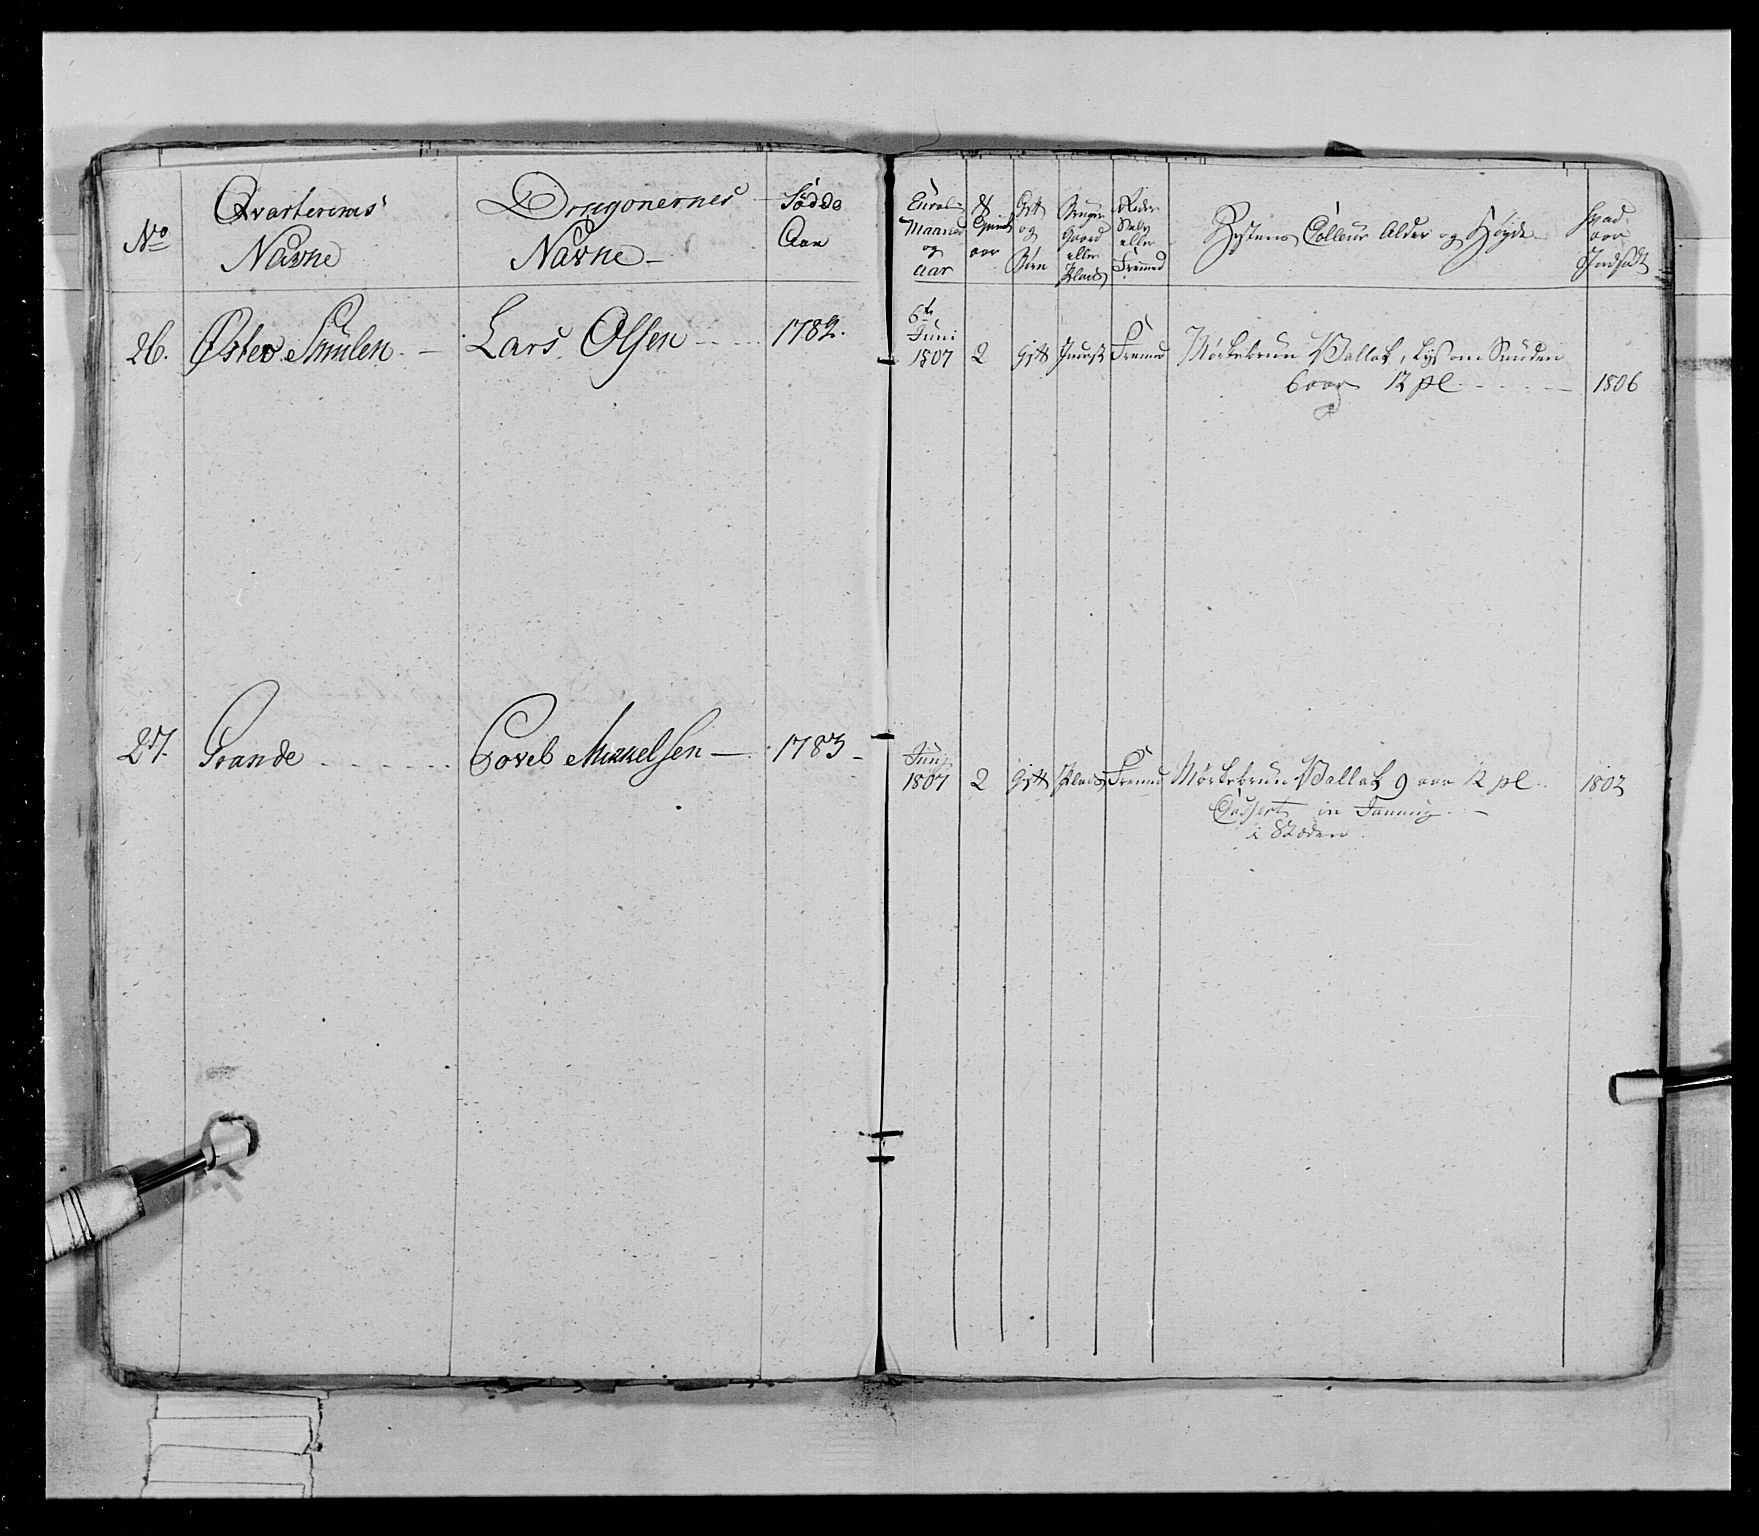 No
Qvarterernes
Navne
Dragonernes
Navne
Fødde
Aar
Enrol=
Maaned
og
aar
aar
Gift
og
Børn
Bruger
Gaard
eller
Plads
Rider
Selv
eller
Fremed
Hestens Colleur Alder og Høyde
Hvad
aar
Indsadt
26. Øster Smulen. Lars Olsen 1782. 6te Juni 1807 2 gift Fremed Mørkebrun Vallak, Lys om Snuden
6 aar 12 pl 1806
27. Grande Povel Mikkelsen 1783 Junj 1807 2 gift Plads Fremed Mørkebrun Vallak 9 aar 12 pl 1802
Casseret in
i Støden